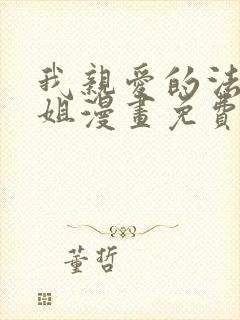 我親愛的法
姐漫畫免費
董哲